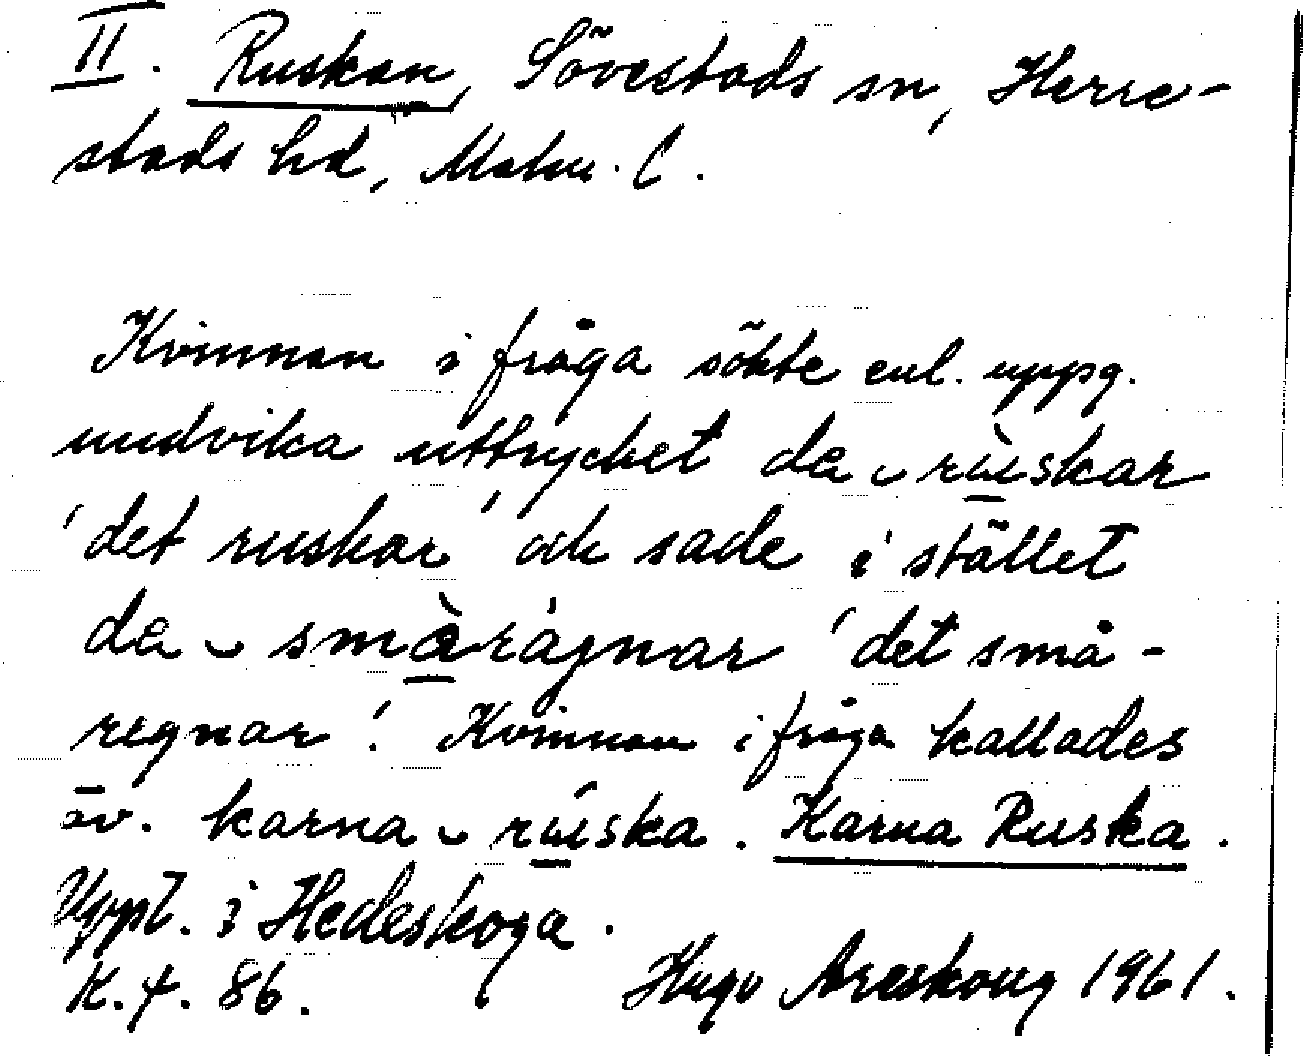 II. Ruskan, Sövestads sn, Herre-
stads hd, Malm. l.
Kvinnan i fråga sökte enl. uppg.
undvika uttrycket da ᴗ rùskar
'det ruskar' och sade i stället
da ᴗ smàrágnar 'det små-
regnar'. Kvinnan i fråga kallades
äv. karna ᴗ rúska. Karna Ruska.
Uppt. i Hedeskoga.
K. f. 86. Hugo Areskoug 1961.